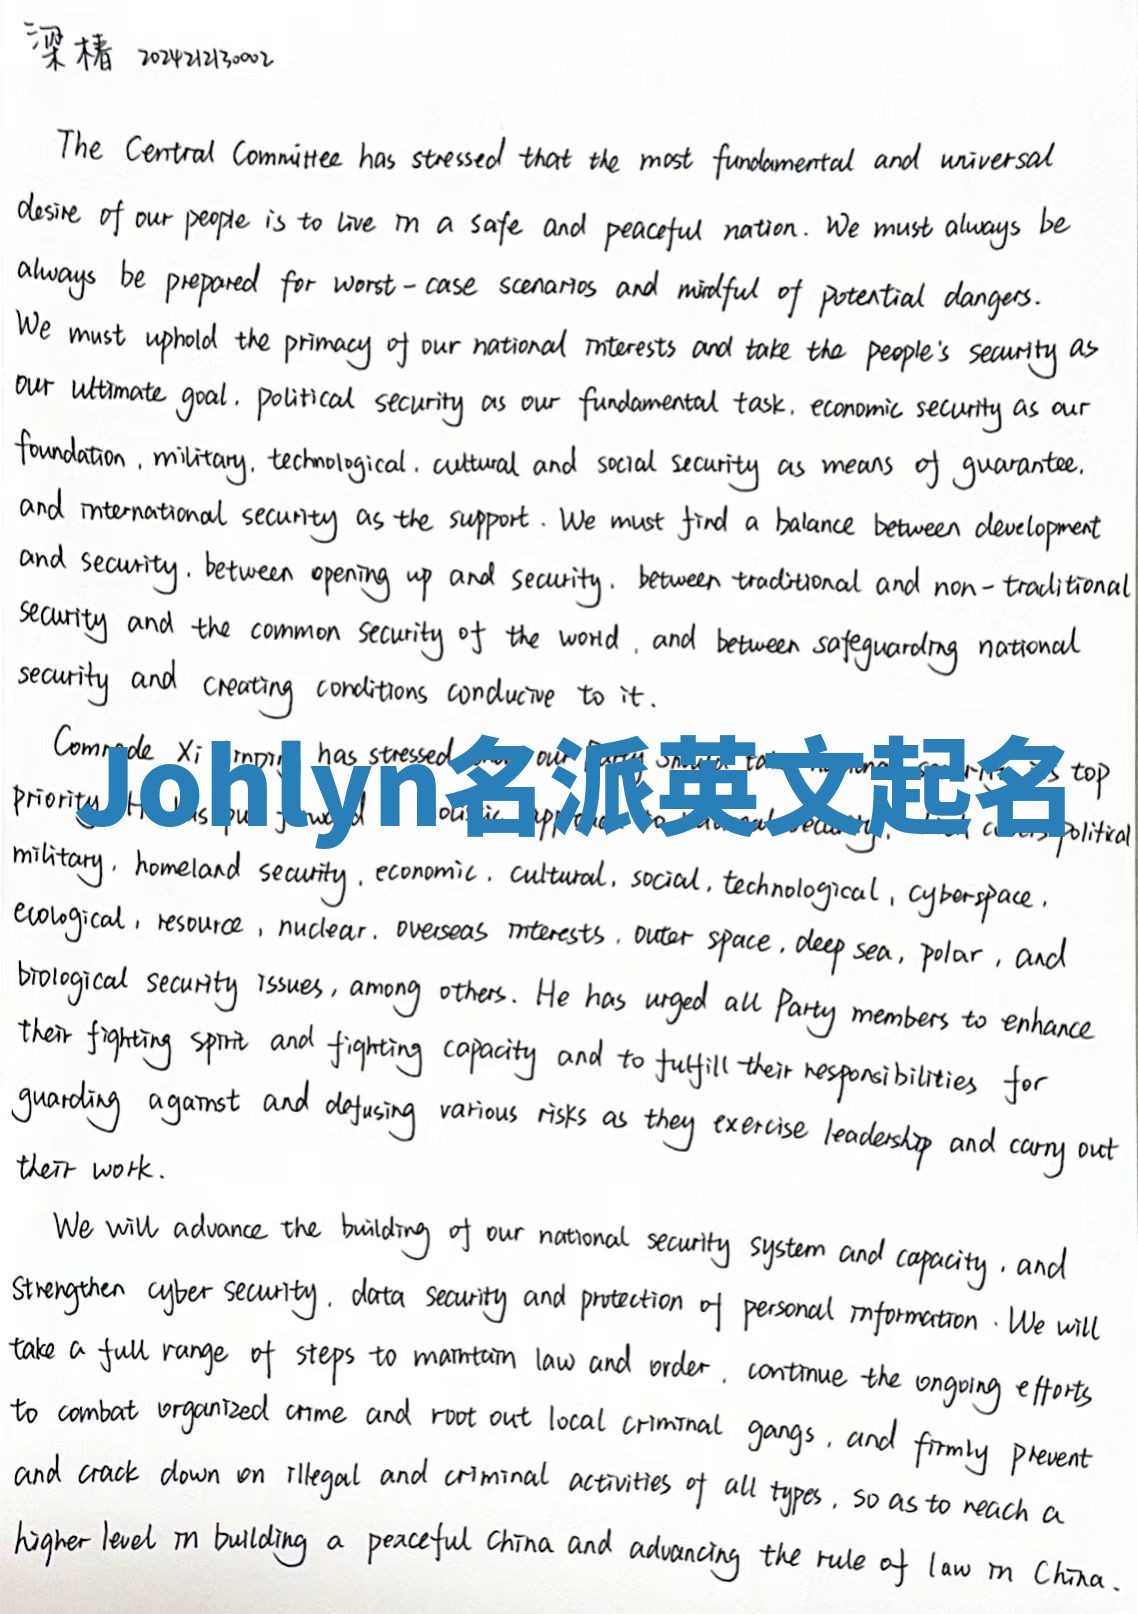 梁椿 2024212130002
The Central Committee has stressed that the most fundamental and universal
desire of our people is to live in a safe and peaceful nation. We must always be
always be prepared for worst-case scenarios and mindful of potential dangers.
We must uphold the primacy of our national interests and take the people's security as
our ultimate goal, political security as our fundamental task, economic security as our
foundation, military, technological, cultural and social security as means of guarantee,
and international security as the support. We must find a balance between development
and security, between opening up and security, between traditional and non-traditional
security and the common security of the world, and between safeguarding national
security and creating conditions conducive to it.
Comrade Xi has stressed our top
Johlyn名派英文起名
priority political
military, homeland security, economic, cultural, social, technological, cyberspace,
ecological, resource, nuclear, overseas interests, outer space, deep sea, polar, and
biological security issues, among others. He has urged all Party members to enhance
their fighting spirit and fighting capacity and to fulfill their responsibilities for
guarding against and defusing various risks as they exercise leadership and carry out
their work.
We will advance the building of our national security system and capacity, and
strengthen cyber security, data security and protection of personal information. We will
take a full range of steps to maintain law and order, continue the ongoing efforts
to combat organized crime and root out local criminal gangs, and firmly prevent
and crack down on illegal and criminal activities of all types, so as to reach a
higher level in building a peaceful China and advancing the rule of law in China.